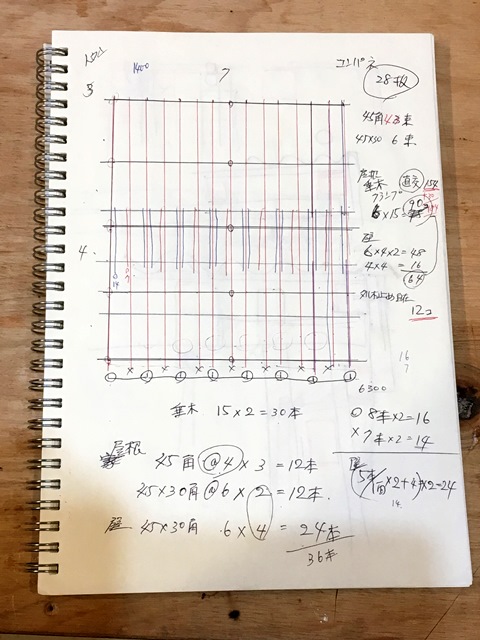 1400
7
コンパネ
28枚
3
45角 43束
45×30 6束
屋根
垂木 直交 154
クランプ 90
6×15=
4
壁
6×4×2=48
4×4 =16
64
14
7
12コ
16
7
× × × × × × ×
6300
垂木 15×2=30本
○ 8本×2=16
× 7本×2=14
屋根
45角 @4×3=12本
45×30角 @6×2=12本
×2+4)×2=24
14
壁 45×30角 6×4=24本
36本